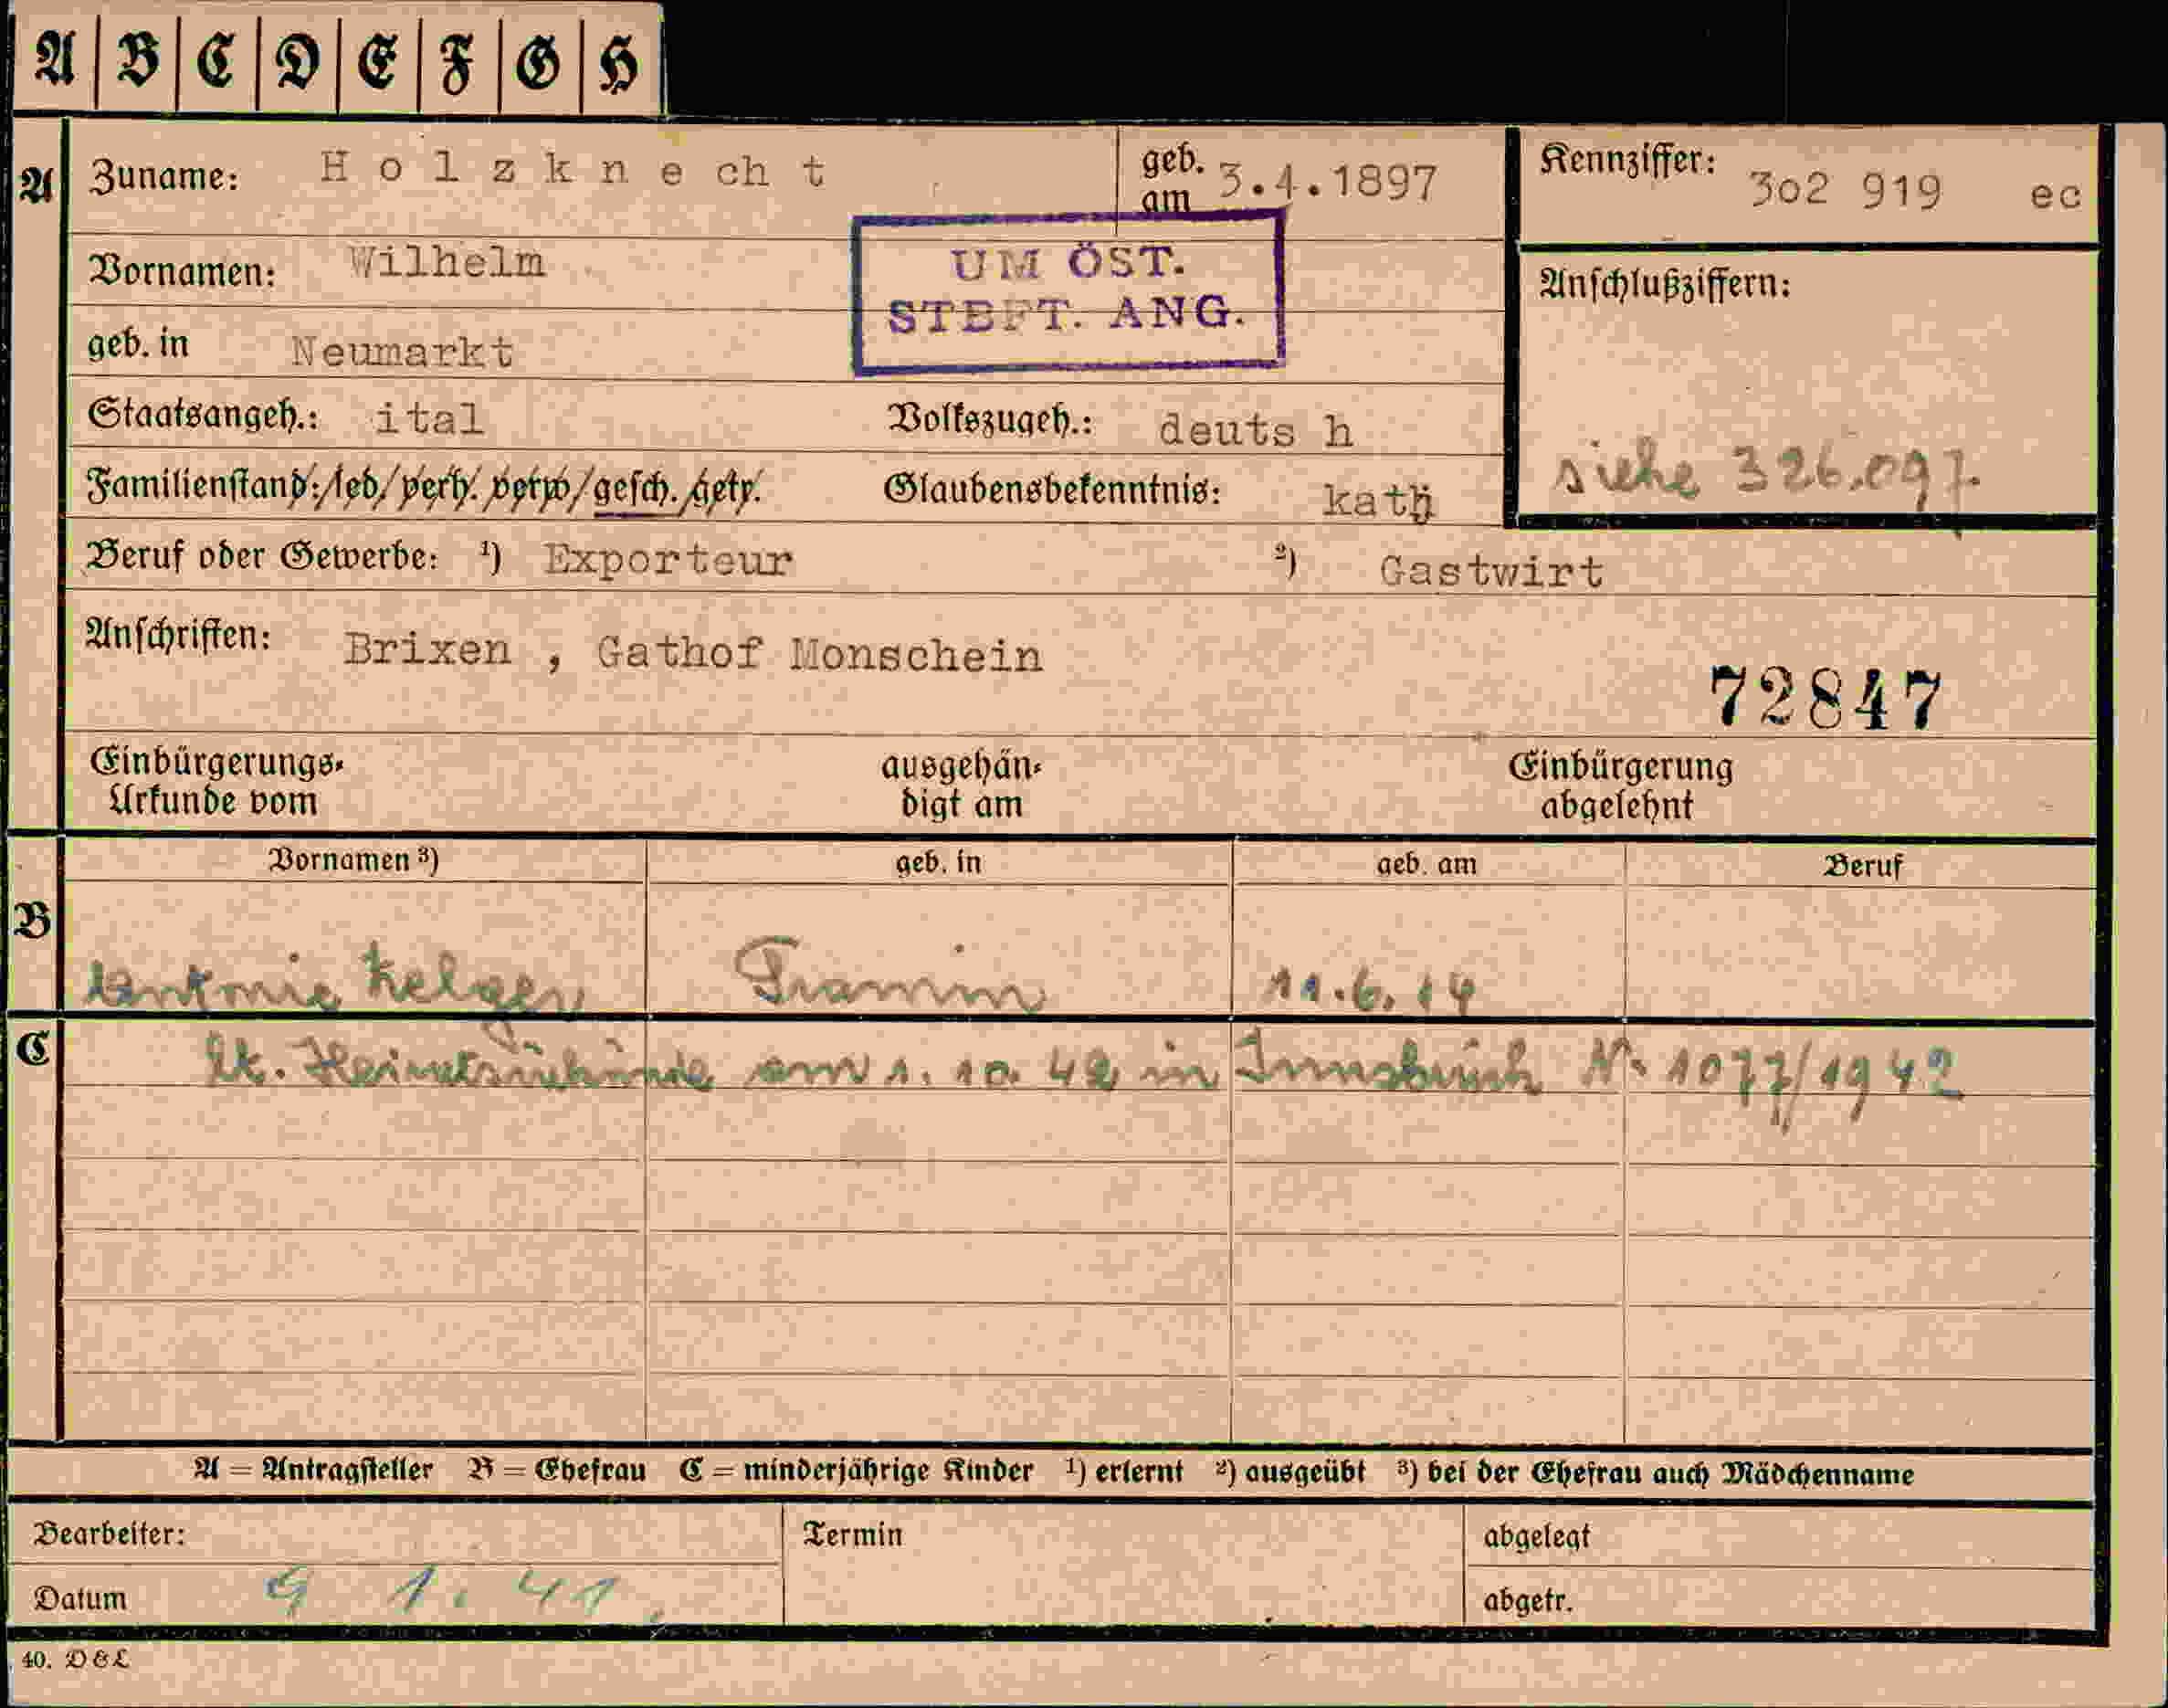 A | B | C | D | E | F | G | H
A Zuname: Holzknecht geb. am 3.4.1897 Kennziffer: 3o2 919 ec
Vornamen: Wilhelm
UM ÖST.
STBFT. ANG.
Anschlußziffern:
geb. in Neumarkt
Staatsangeh.: ital Volkszugeh.: deuts h
siehe 326.097.
Familienstand: led. verh. verw. gesch. getr. Glaubensbekenntnis: kath
Beruf oder Gewerbe: ¹) Exporteur ²) Gastwirt
Anschriften: Brixen , Gathof Monschein
72847
Einbürgerungs- ausgehän- Einbürgerung
Urkunde vom digt am abgelehnt
Vornamen ³) geb. in geb. am Beruf
B
Antonie Kelger Tramin 11.6.14
C
lt. Heiratsurkunde am 1. 10. 42 in Innsbruck Nr. 1077/1942
A = Antragsteller B = Ehefrau C = minderjährige Kinder ¹) erlernt ²) ausgeübt ³) bei der Ehefrau auch Mädchenname
Bearbeiter: Termin abgelegt
Datum 9 1. 41. abgetr.
40. D & L